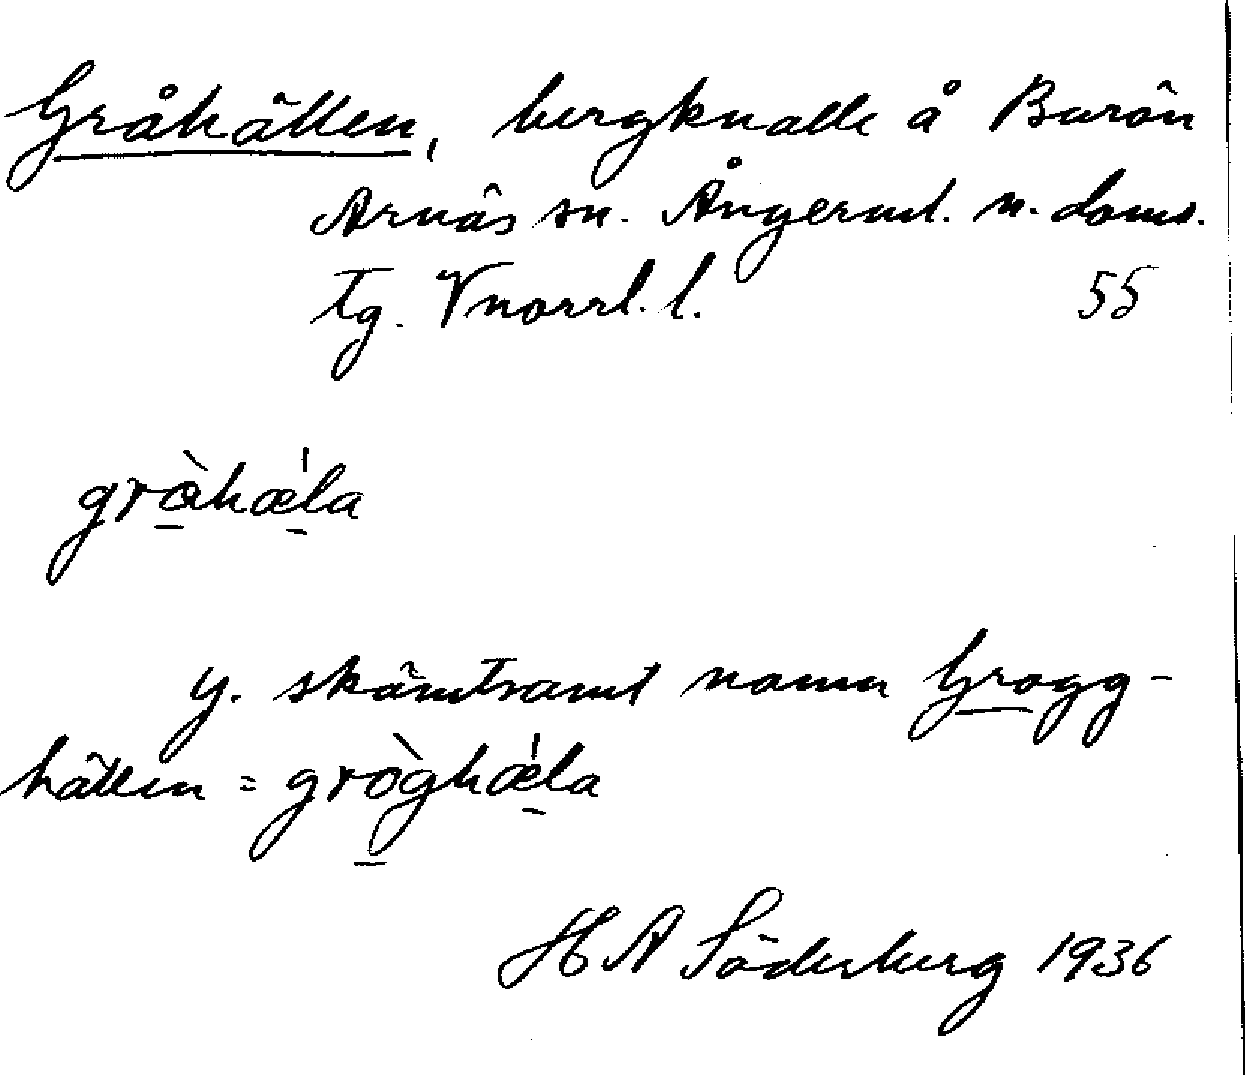 Gråhällen, bergknalle å Burön
Arnäs sn. Ångerml. n. doms.
tg. Vnorrl. l. 55
gràhæ̀la
y. skämtsamt namn Grogg-
hällen = gròghæ̀la
H A Söderberg 1936